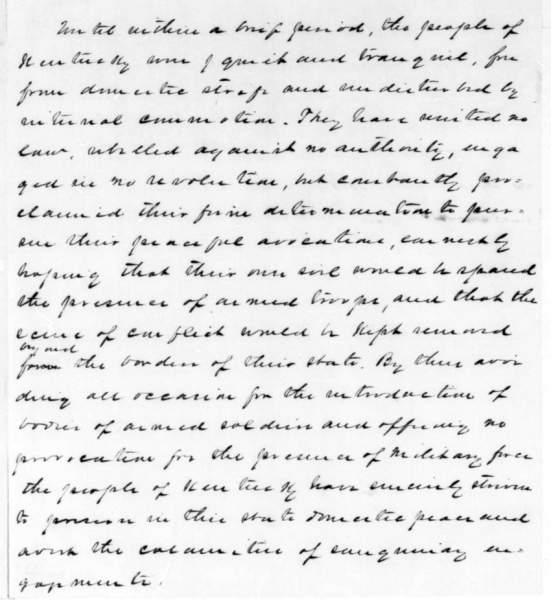 Until within a brief period, the people of
Kentucky were quiet and tranquil, free
from domestic strife and undisturbed by
internal commotion. They have resisted no
law, rebelled against no authority, enga
ged in no revolution, but constantly pro-
claimed their firm determination to pur-
sue their peaceful avocations, earnestly
hoping that their own soil would be spared
the presence of armed troops, and that the
scene of conflict would be kept removed
beyond
from the border of their state. By thus avoi
ding all occasion for the introduction of
bodies of armed soldiers and offering no
provocation for the presence of military force
the people of Kentucky have sincerely striven
to preserve in this state domestic peace and
avert the calamities of sanguinary en-
gagements.